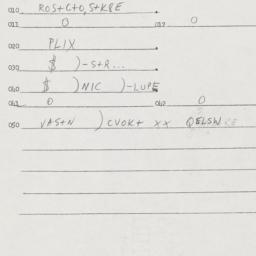 010 ROS+C+O,S+KPE
011 0 012 0
020 PLIX
030 $ )-S+R...
040 $ )NIC )-LUPE
041 0 042 0
050 VAS+N )CVOK+ XX QELSW